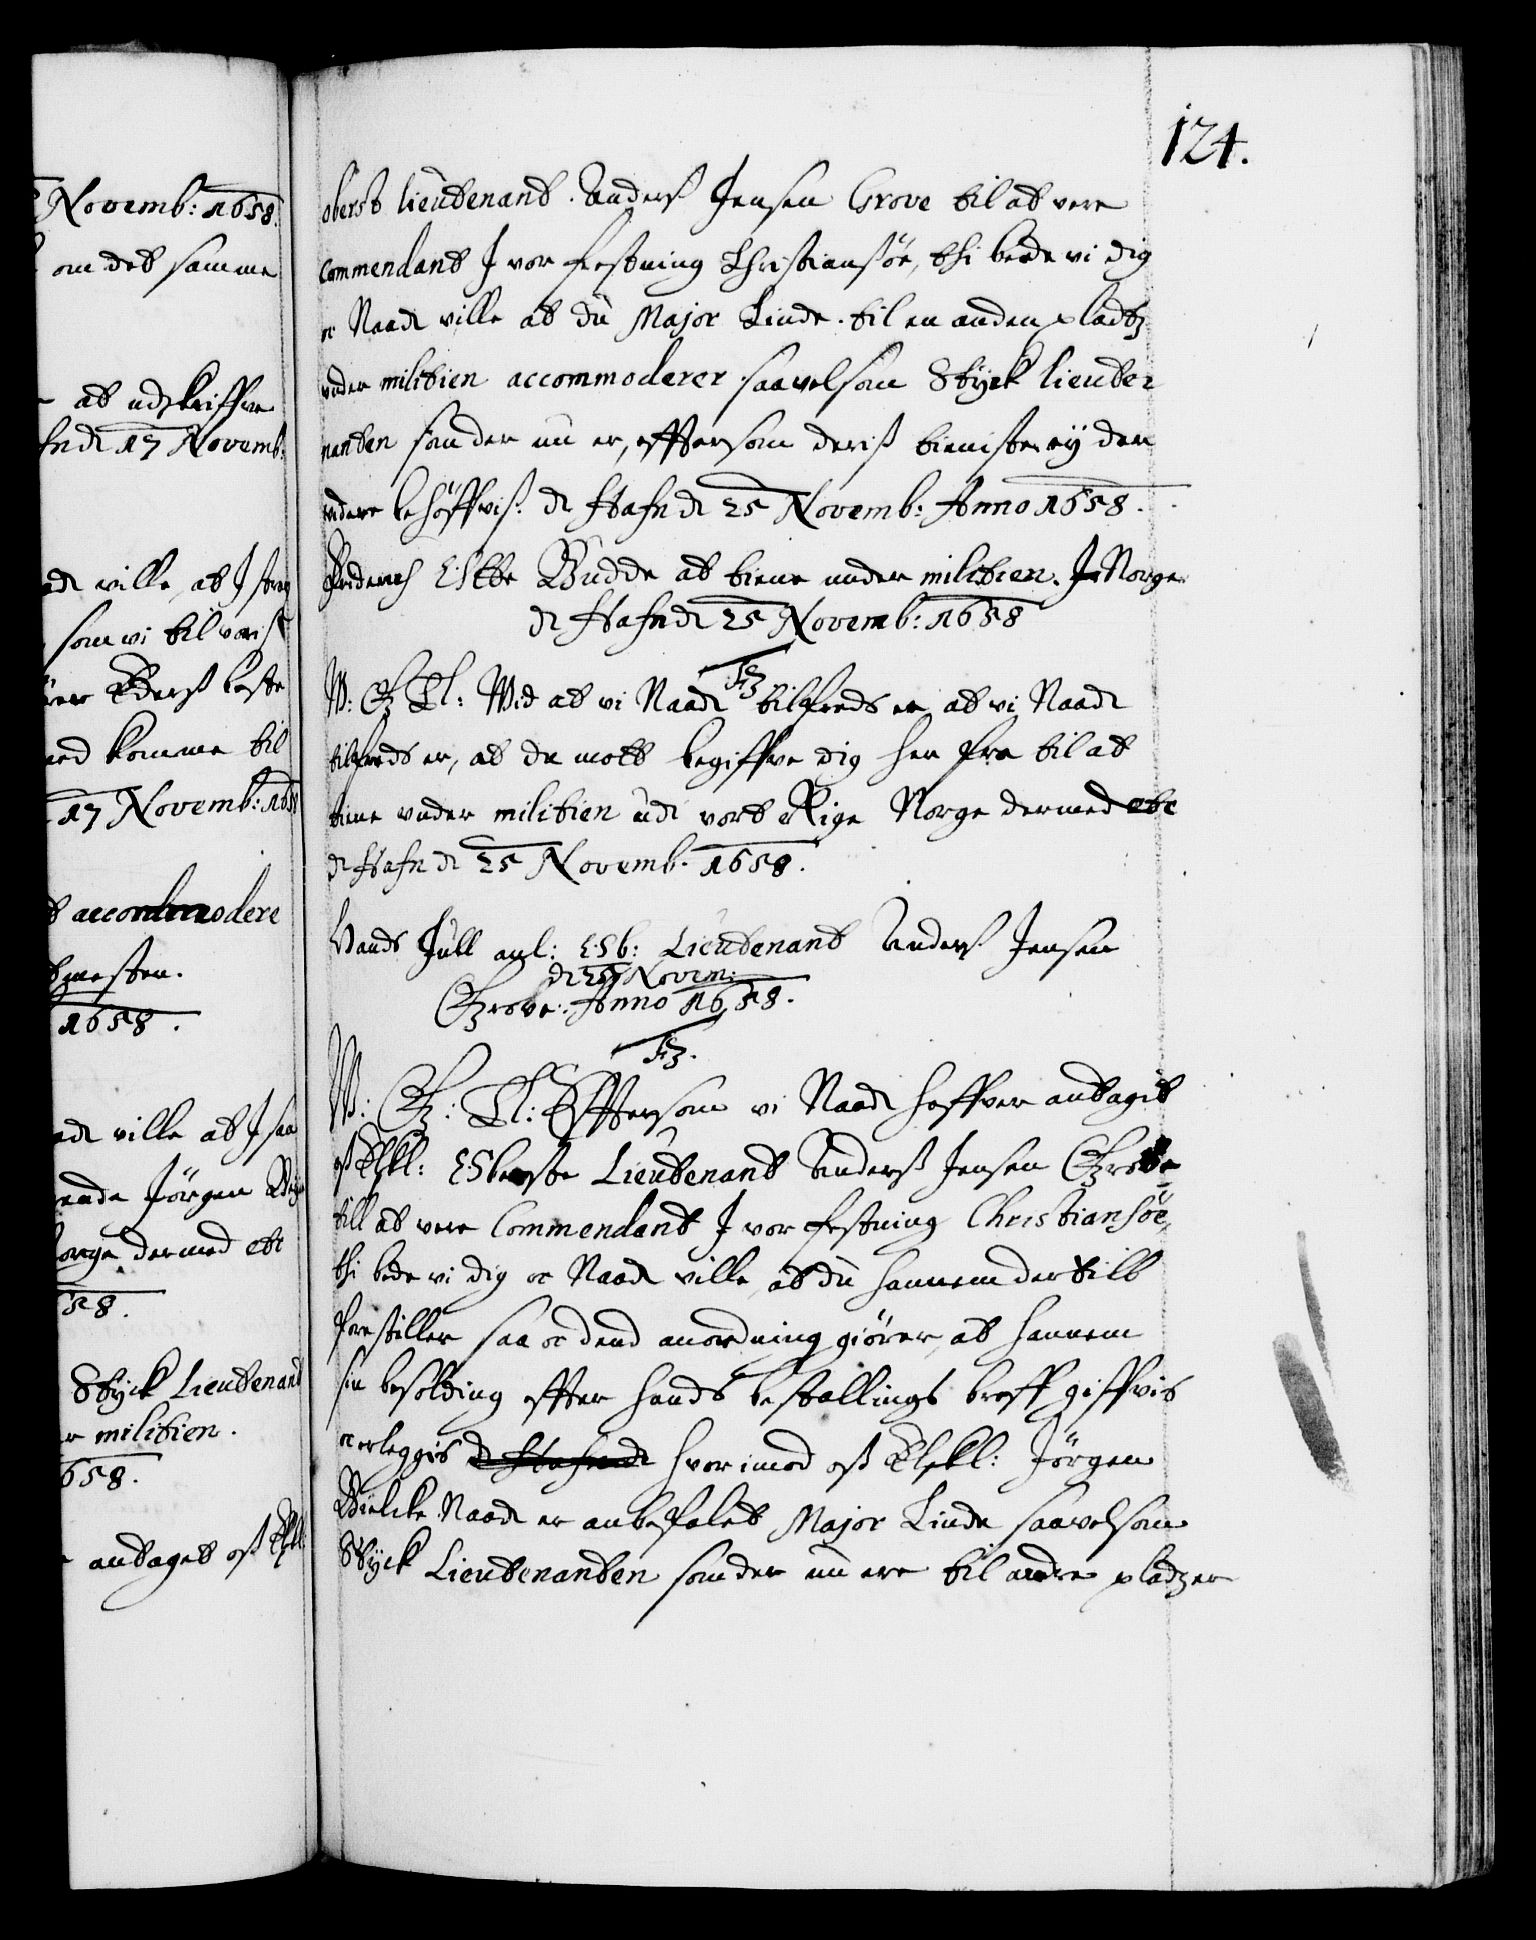 124.
Novemb: 1658.
om det samme
at udskriffve
17 Novemb:
ville, at J
som vi til voris
beste
komme til
17 Novemb: 1658
accommodere
1658.
ville at J saa
Jörgen
dermed etc
58.
Styck Lieutenand
militien.
1658.
antaget oss
oberst lieutenant Anders Jensen Grove til at vere
Commendant J vor festning Christiansöe, thi bede vi dig
oc Naadl ville at du Major Linde til en anden pladtz
under militien accommoderer saavelsom Styck lieute-
nanten som der nu er, effttersom deris tieniste ej der
videre behöffvis. dl Hafn dl 25 Novemb: Anno 1658.
Friderich Budde at tiene under militien J Norge
dl Hafn dl 25 Novemb: 1658
F3
W: G Tl: Wid at vi Naadl tilfreds er at vi Naadl
tilfreds er, at du mott begiffve dig her fra til at
tiene under militien udi vort Rige Norge dermed etc
dl Hafn dl 25 Novemb. 1658.
Hands Jull anl: Obt: Lieutenant Anders Jensen
dl 25 Novem:
Grove: Anno 1658.
F3.
W: G: Tl: Effttersom vi Naadl haffver antaget
oss Elskl: Oberste Lieutenant Anders Jensen Grove
till at vere Commendant J vor festning Christiansöe,
thi bede vi dig oc Naadl ville, at du hannem dertill
forestiller saa oc dend anordning giörer, at hannem
sin besolding effter hands bestallings breff giffvis
oc erleggis dl Hafn dl hvorimod oss Elskl: Jörgen
Bielcke Naadl er anbefalet Major Linde saavelsom
Styck Lieutenanten som der nu ere til andre pladtzer